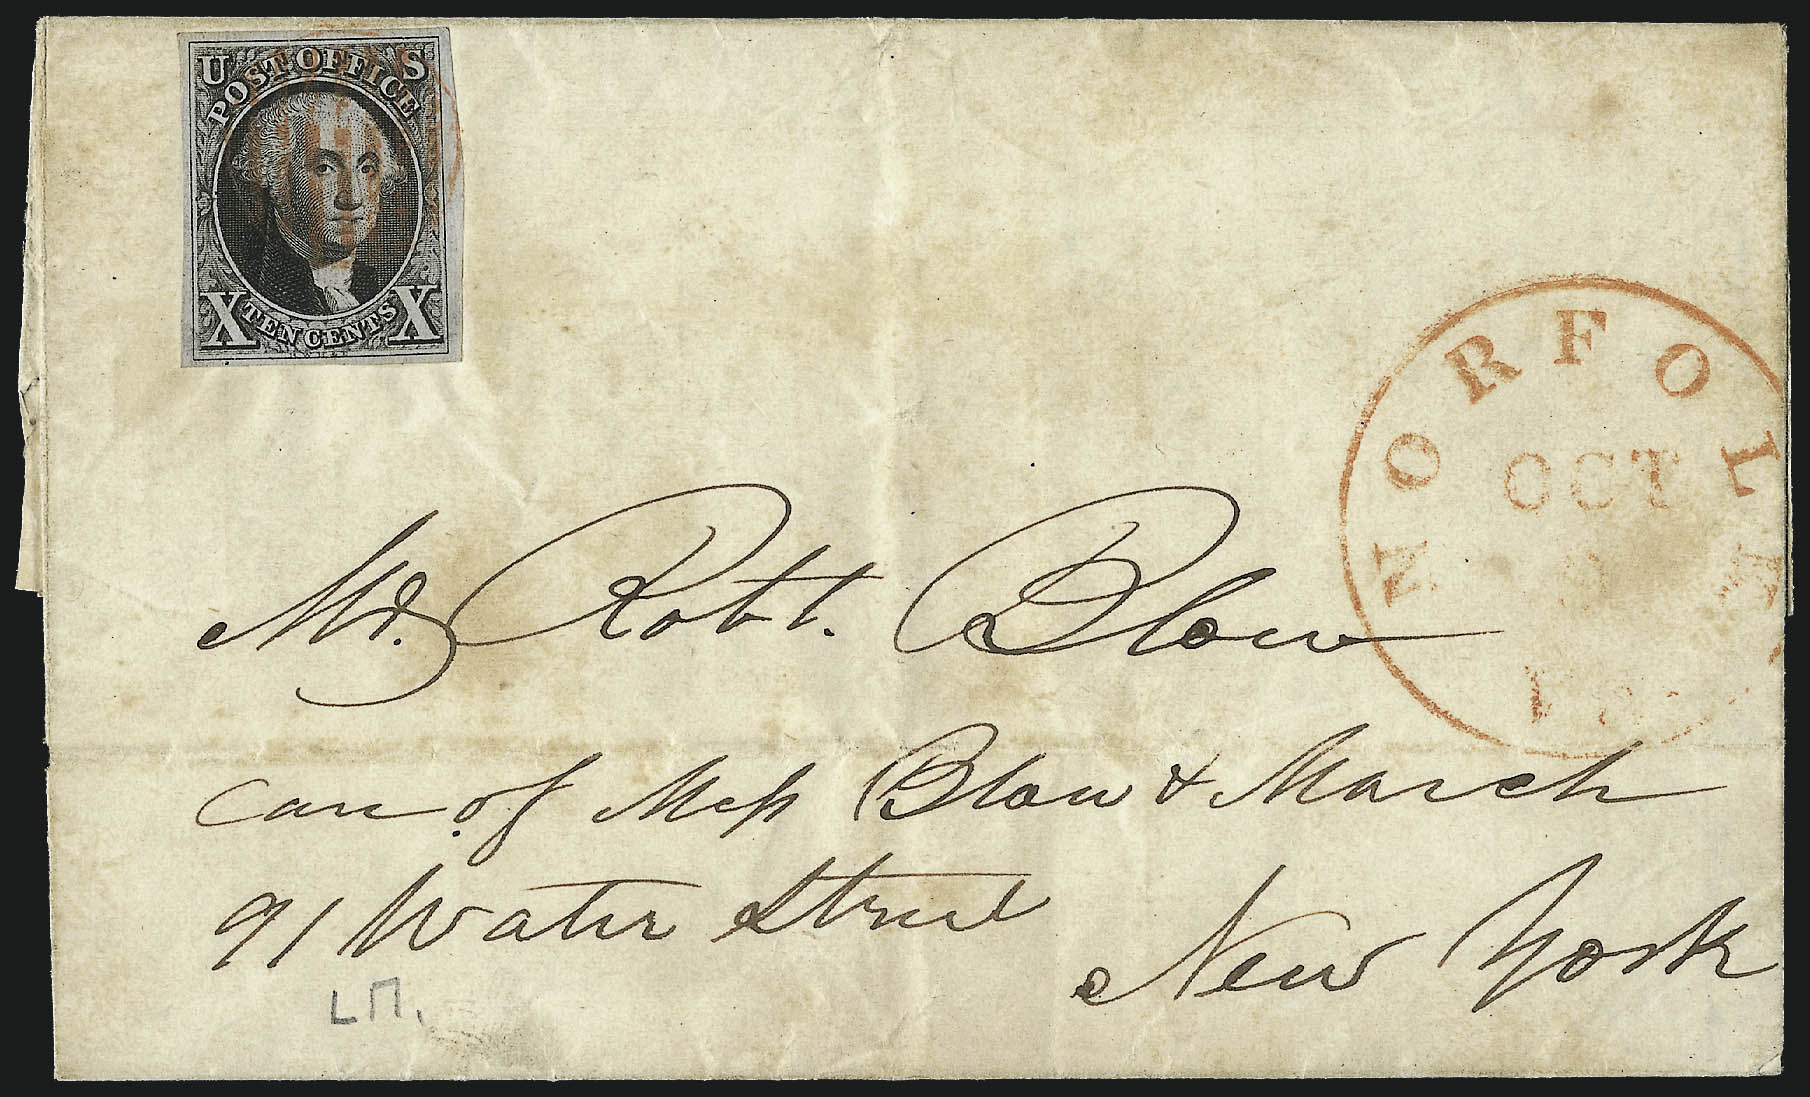 U S
POST OFFICE
X TEN CENTS X
NORFOLK
OCT
Mr. Robt. Blow
Care of Mess Blow & March
91 Water Street
New York